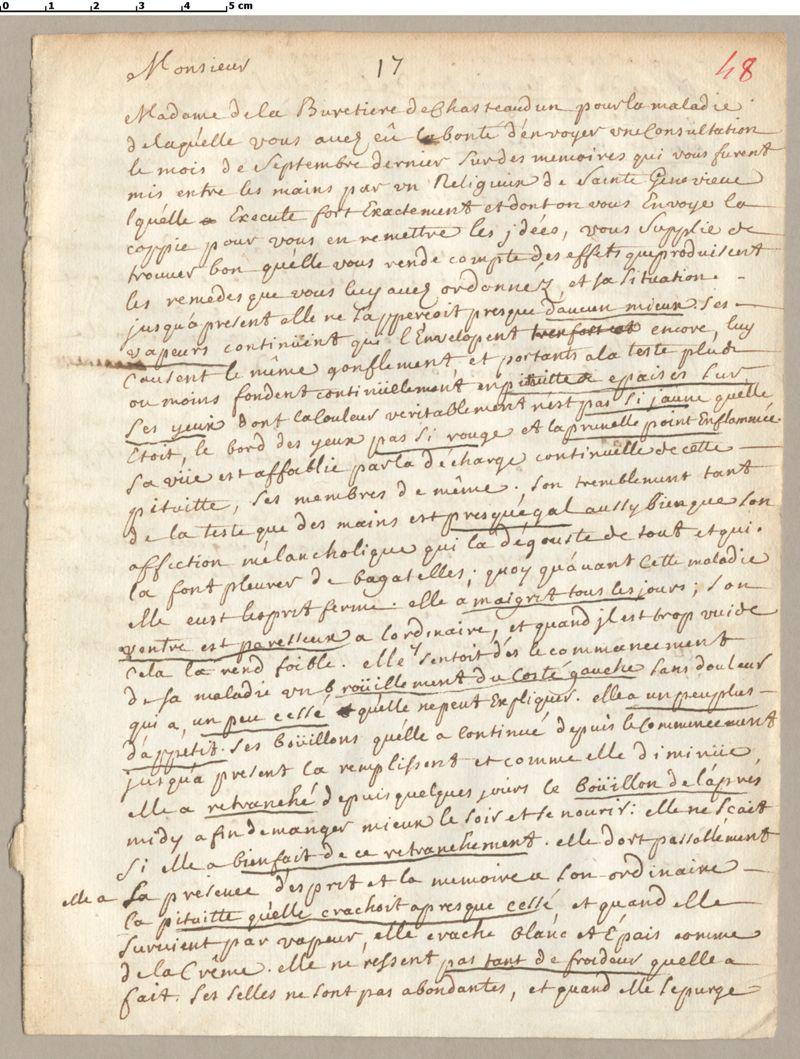 0 1 2 3 4 5 cm
Monsieur 17 48
Madame de la Buretiere de Chasteaudun pour la maladie
de laquelle vous auez eû la bonte d'envoyer vne Consultation
le mois de Septembre dernier sur des memoires qui vous furent
mis entre les mains par vn Religieux de Sainte Genevieue
lquélle Execute fort Exactement et dont on vous Envoye la
coppie pour vous en remettre les jdées, vous supplie de
trouuer bon quélle vous rende compte des effets que produisent
les remedes que vous luy auez ordonnéz, et sa situation.
jusqu'a present elle ne s'apperçoit presque d'aucun mieux. Ses
vapeurs continüent qui l'Envelopent encore, luy
causent le même gonflement, et portants a la teste plus
ou moins fondent continüellement en pituitte epaises sur
Ses yeux dont la couleur veritablement n'est pas si jaune quélle
Etoit, le bord des yeux pas si rouge et la prunelle point Enflammée.
Sa vüe est affoiblie par la décharge continüelle de cette
pituitte, ses membres de même. Son tremblement tant
de la teste que des mains est presqu'égal aussy bien que son
affection mélancholique qui la dégouste de tout et qui
la font pleurer de bagatelles; quoy qu'auant cette maladie
elle eust l'esprit ferme. elle a maigrit tous les jours; son
ventre est paresseux a l'ordinaire, et quand jl est trop vuide
cela la rend foible. elle sentoit dés le commancement
de sa maladie vn broüillement du Costé gauche sans douleur
qui a, un peu cessé quélle ne peut Expliquer. elle a un peu plus
d'appetit. Ses boüillons quélle a continué depuis le commencement
jusqu'a present la remplissent et comme elle diminüe
elle a retranché depuis quelques jours le boüillon de l'aprés
midy afin de manger mieux le soir et se nourir: elle ne sçait
si elle a bien fait de ce retranchement. elle dort passablement
elle a La presence d'esprit et la memoire a son ordinaire
la pituitte quélle crachoit a presque cessé et quand elle
survient par vapeur, elle crache blanc et Épais comme
de la Crême. elle ne ressent pas tant de froideur quelle a
fait. Ses selles ne sont pas abondantes, et quand elle se purge